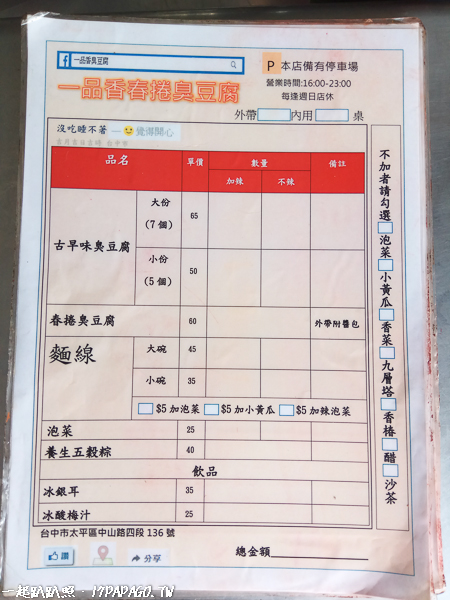 一品香臭豆腐
P 本店備有停車場
一品香春捲臭豆腐
營業時間:16:00-23:00
每逢週日店休
外帶 內用 桌
沒吃睡不著 — 覺得開心
品名 單價 數量 備註
加辣 不辣
古早味臭豆腐
大份
(7 個)
65
小份
(5 個)
50
春捲臭豆腐 60 外帶附醬包
麵線
大碗 45
小碗 35
$5 加泡菜 $5 加小黃瓜 $5 加辣泡菜
泡菜 25
養生五穀粽 40
飲品
冰銀耳 35
冰酸梅汁 25
不加者請勾選 泡菜 小黃瓜 香菜 九層塔 香椿 醋 沙茶
台中市太平區中山路四段 136 號
讚
分享
總金額
一起趴趴照．17PAPAGO.TW